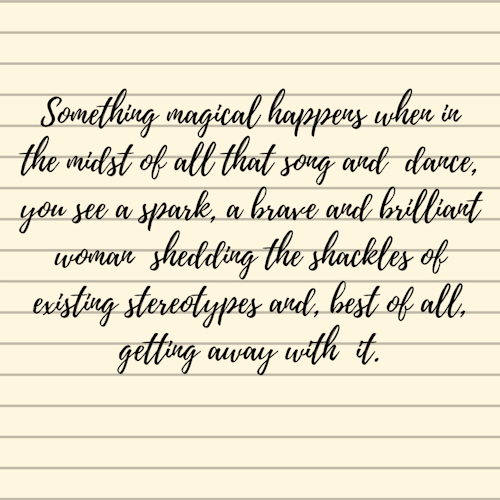 Something magical happens when in
the midst of all that song and dance,
you see a spark, a brave and brilliant
woman shedding the shackles of
existing stereotypes and, best of all,
getting away with it.